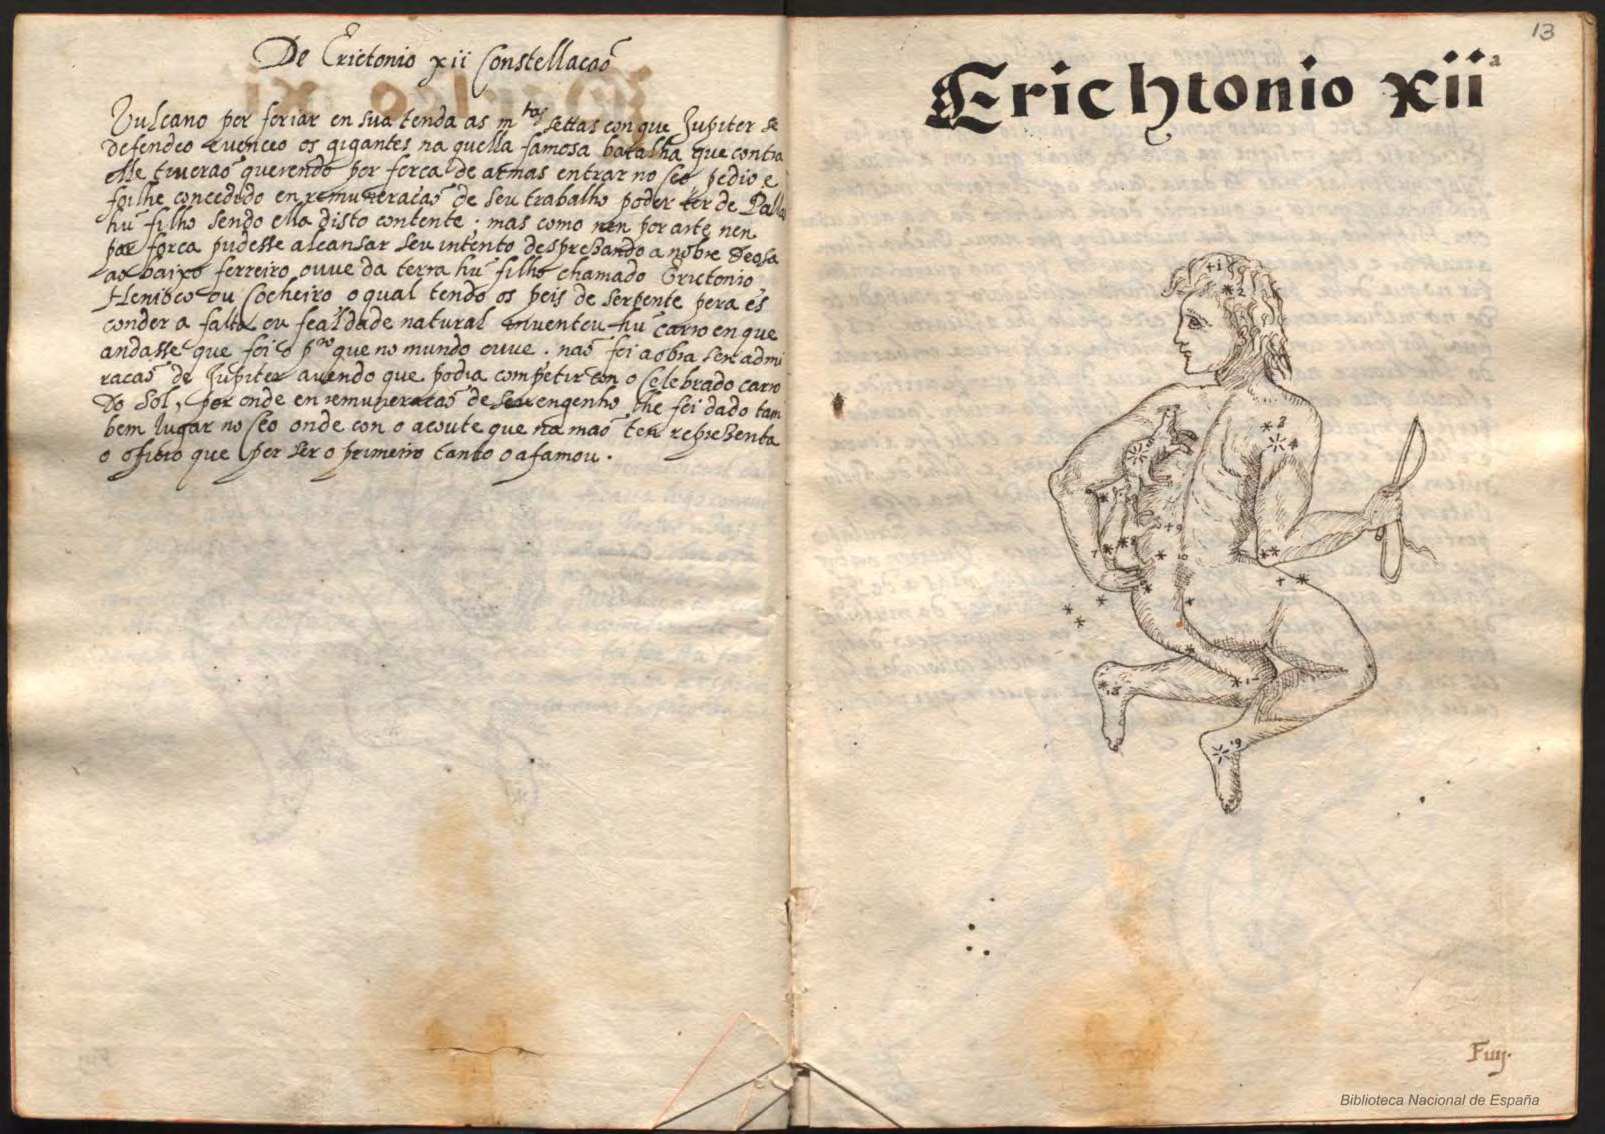 De Erictonio xii Constellacaõ
Vulcano por foriar en sua tenda as m.tas settas con que Jupiter se
defendeo e venceo os gigantes na quella famosa batalha que contra
elle tiveraõ querendo por forca de armas entrar no seo pedio e
foilhe concedido en remuneracaõ de seu trabalho poder ter de Pallas
hũ filho sendo ella disto contente. mas como nen por arte nen
por forca pudesse alcansar seu intento desprezando a nobre Deosa
ao baixo ferreiro ouve da terra hũ filho chamado Erictonio
ou Cocheiro o qual tendo os peis de serpente pera es
conder a falta ou fealdade natural inventou hũ carro en que
andasse que foi o pro que no mundo ouve. naõ foi a obra sen admi
racaõ de Jupiter avendo que podia competir con o celebrado carro
do sol, por onde en remuneracaõ de seu engenho lhe foi dado tam
bem lugar no ceo onde con o acoute que na maõ ten representa
o oficio que por ser o primeiro tanto o afamou.
13
Erichtonio xii a
+1
* 2
* 3
* 4
7
8
+9
10
18
19
Fuy.
Biblioteca Nacional de España